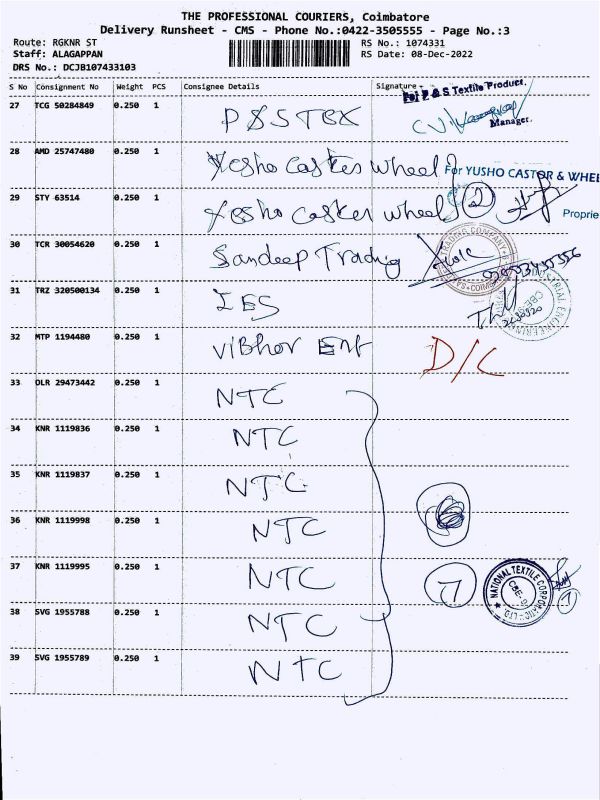 THE PROFESSIONAL COURIERS, Coimbatore
Delivery Runsheet - CMS - Phone No.:0422-3505555 - Page No.:3
Route: RGKNR ST
Staff: ALAGAPPAN
DRS No.: DCJB107433103
RS No.: 1074331
RS Date: 08-Dec-2022
S No Consignment No Weight PCS Consignee Details Signature
27 TCG 50284849 0.250 1 PSSTEX For P & S Textile Product.
Manager.
28 AMD 25747480 0.250 1 Yesho Caster wheel For YUSHO CASTOR & WHEEL
29 STY 63514 0.250 1 Yesho caster wheel 2
Proprie
30 TCR 30054620 0.250 1 Sandeep Trading
31 TRZ 320500134 0.250 1 IES
32 MTP 1194480 0.250 1 Vibhor Ent D/C
33 OLR 29473442 0.250 1 NTC
34 KNR 1119836 0.250 1 NTC
35 KNR 1119837 0.250 1 NTC
36 KNR 1119998 0.250 1 NTC
37 KNR 1119995 0.250 1 NTC 7 NATIONAL TEXTILE CORPORATION LTD. 1
38 SVG 1955788 0.250 1 NTC
39 SVG 1955789 0.250 1 NTC